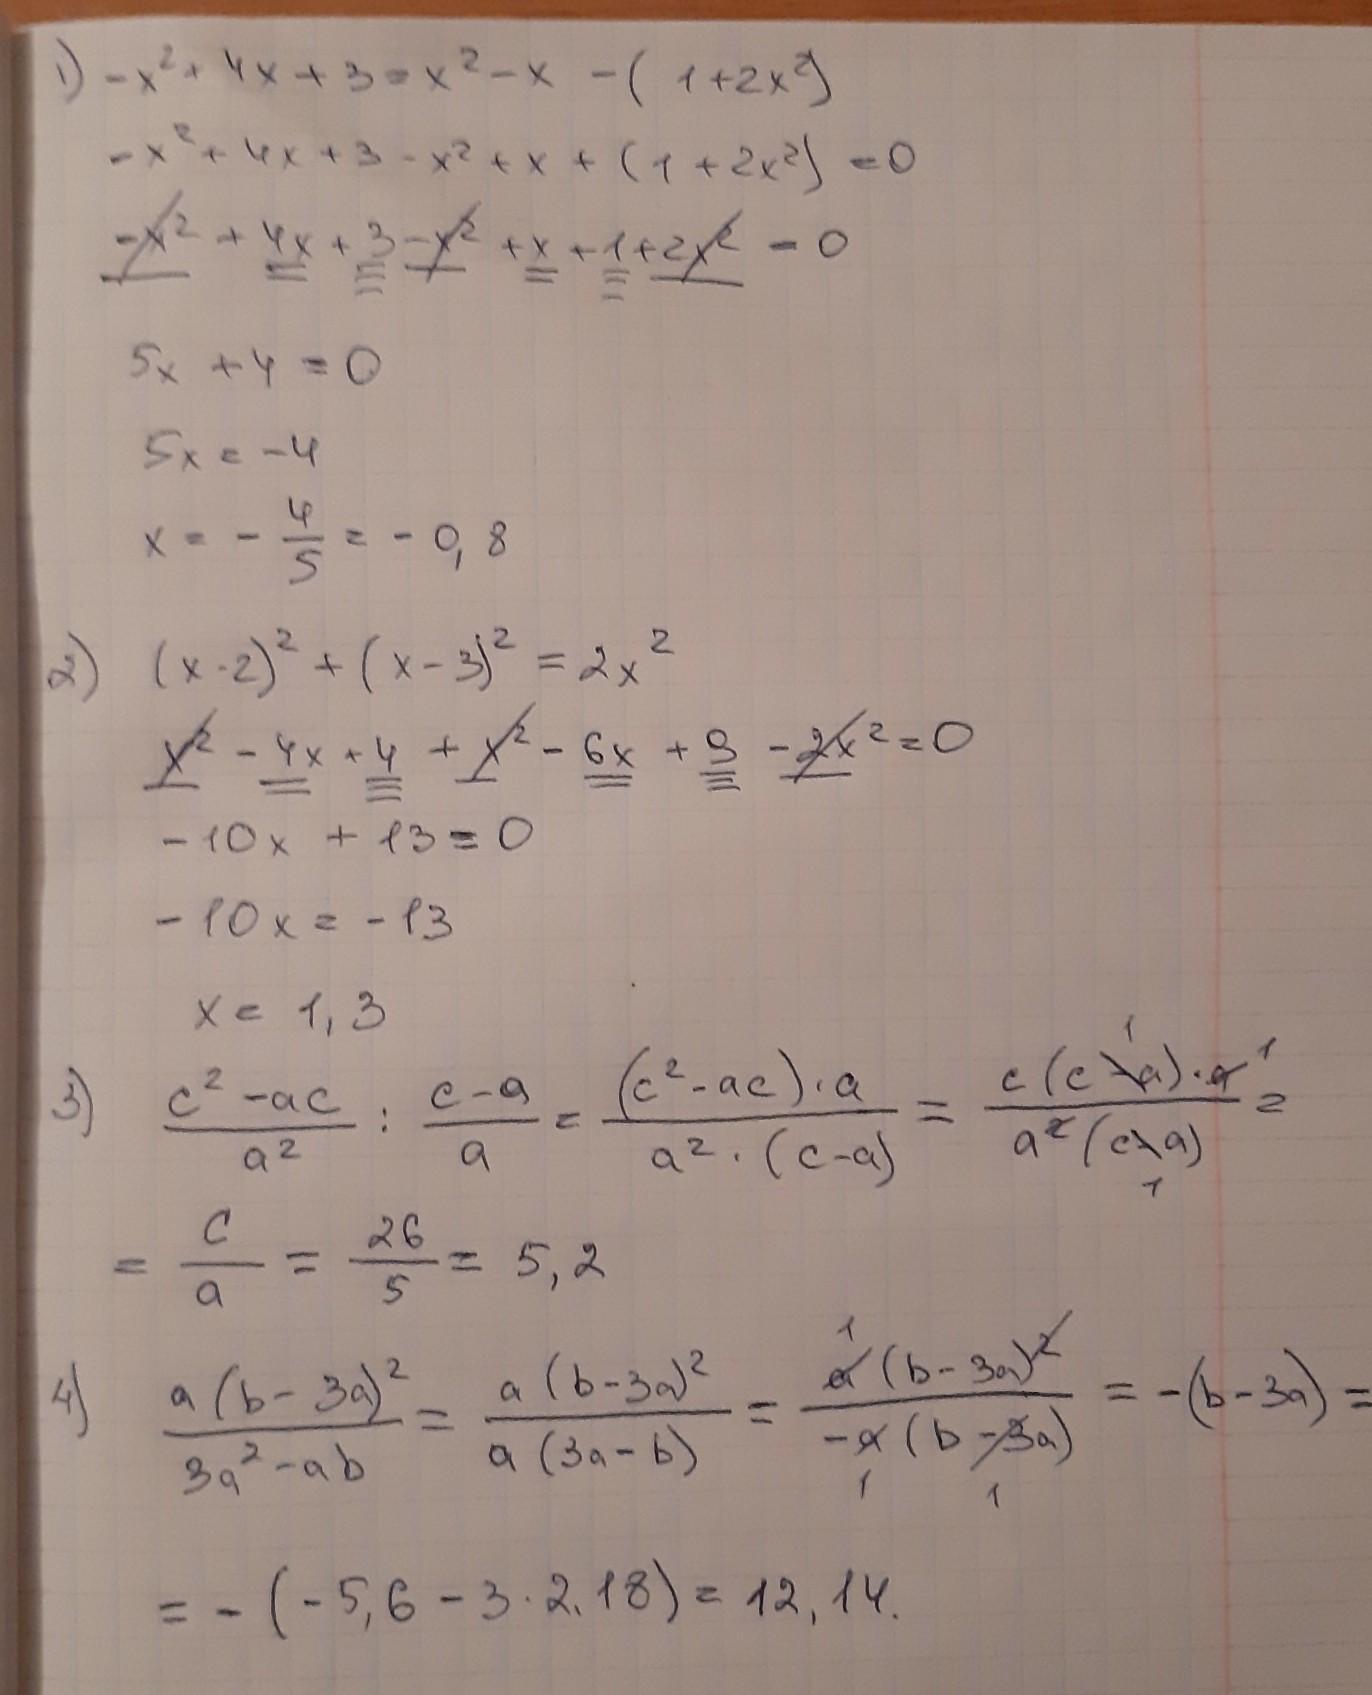 1) -x² + 4x + 3 = x² - x - (1 + 2x²)
-x² + 4x + 3 - x² + x + (1 + 2x²) = 0
-x² + 4x + 3 - x² + x + 1 + 2x² = 0
5x + 4 = 0
5x = -4
x = - 4/5 = - 0,8
2) (x - 2)² + (x - 3)² = 2x²
x² - 4x + 4 + x² - 6x + 9 - 2x² = 0
-10x + 13 = 0
-10x = -13
x = 1,3
3) (c² - ac)/a² : (c - a)/a = ((c² - ac) · a)/(a² · (c - a)) = (c (c - a) · a)/(a² (c - a)) =
= c/a = 26/5 = 5,2
4) a (b - 3a)²/(3a² - ab) = a (b - 3a)²/(a (3a - b)) = a (b - 3a)²/(-a (b - 3a)) = -(b - 3a) =
= - (-5,6 - 3 · 2,18) = 12,14.